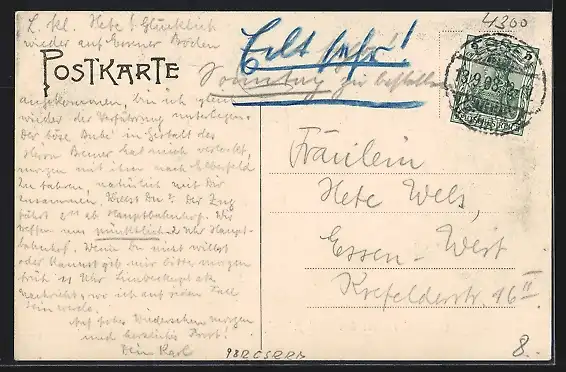 4300
L. kl. Hete! Glücklich
wieder auf Essener Boden
Eilt sehr!
POSTKARTE
Sonntag zu bestellen
ESSEN
13.9.08
angekommen, bin ich gleich
wieder der Verführung unterlegen.
Der böse Bube in Gestalt des
Herrn hat mich verleitet,
morgen mit ihm nach Elberfeld
zu fahren, natürlich mit Dir
zusammen. Willst Du? Der Zug
fährt ab Hauptbahnhof. Wir
treffen uns pünktlich 2 Uhr Haupt-
bahnhof. Wenn Du nicht willst
oder kannst gib mir bitte morgen
früh 11 Uhr
Nachricht, wo ich auf jeden Fall
sein werde.
Auf frohes Wiedersehen morgen
und herzlichen Gruss!
Dein Karl
Fräulein
Hete Wels,
Essen-West
Krefelderstr. 16 II
8.-